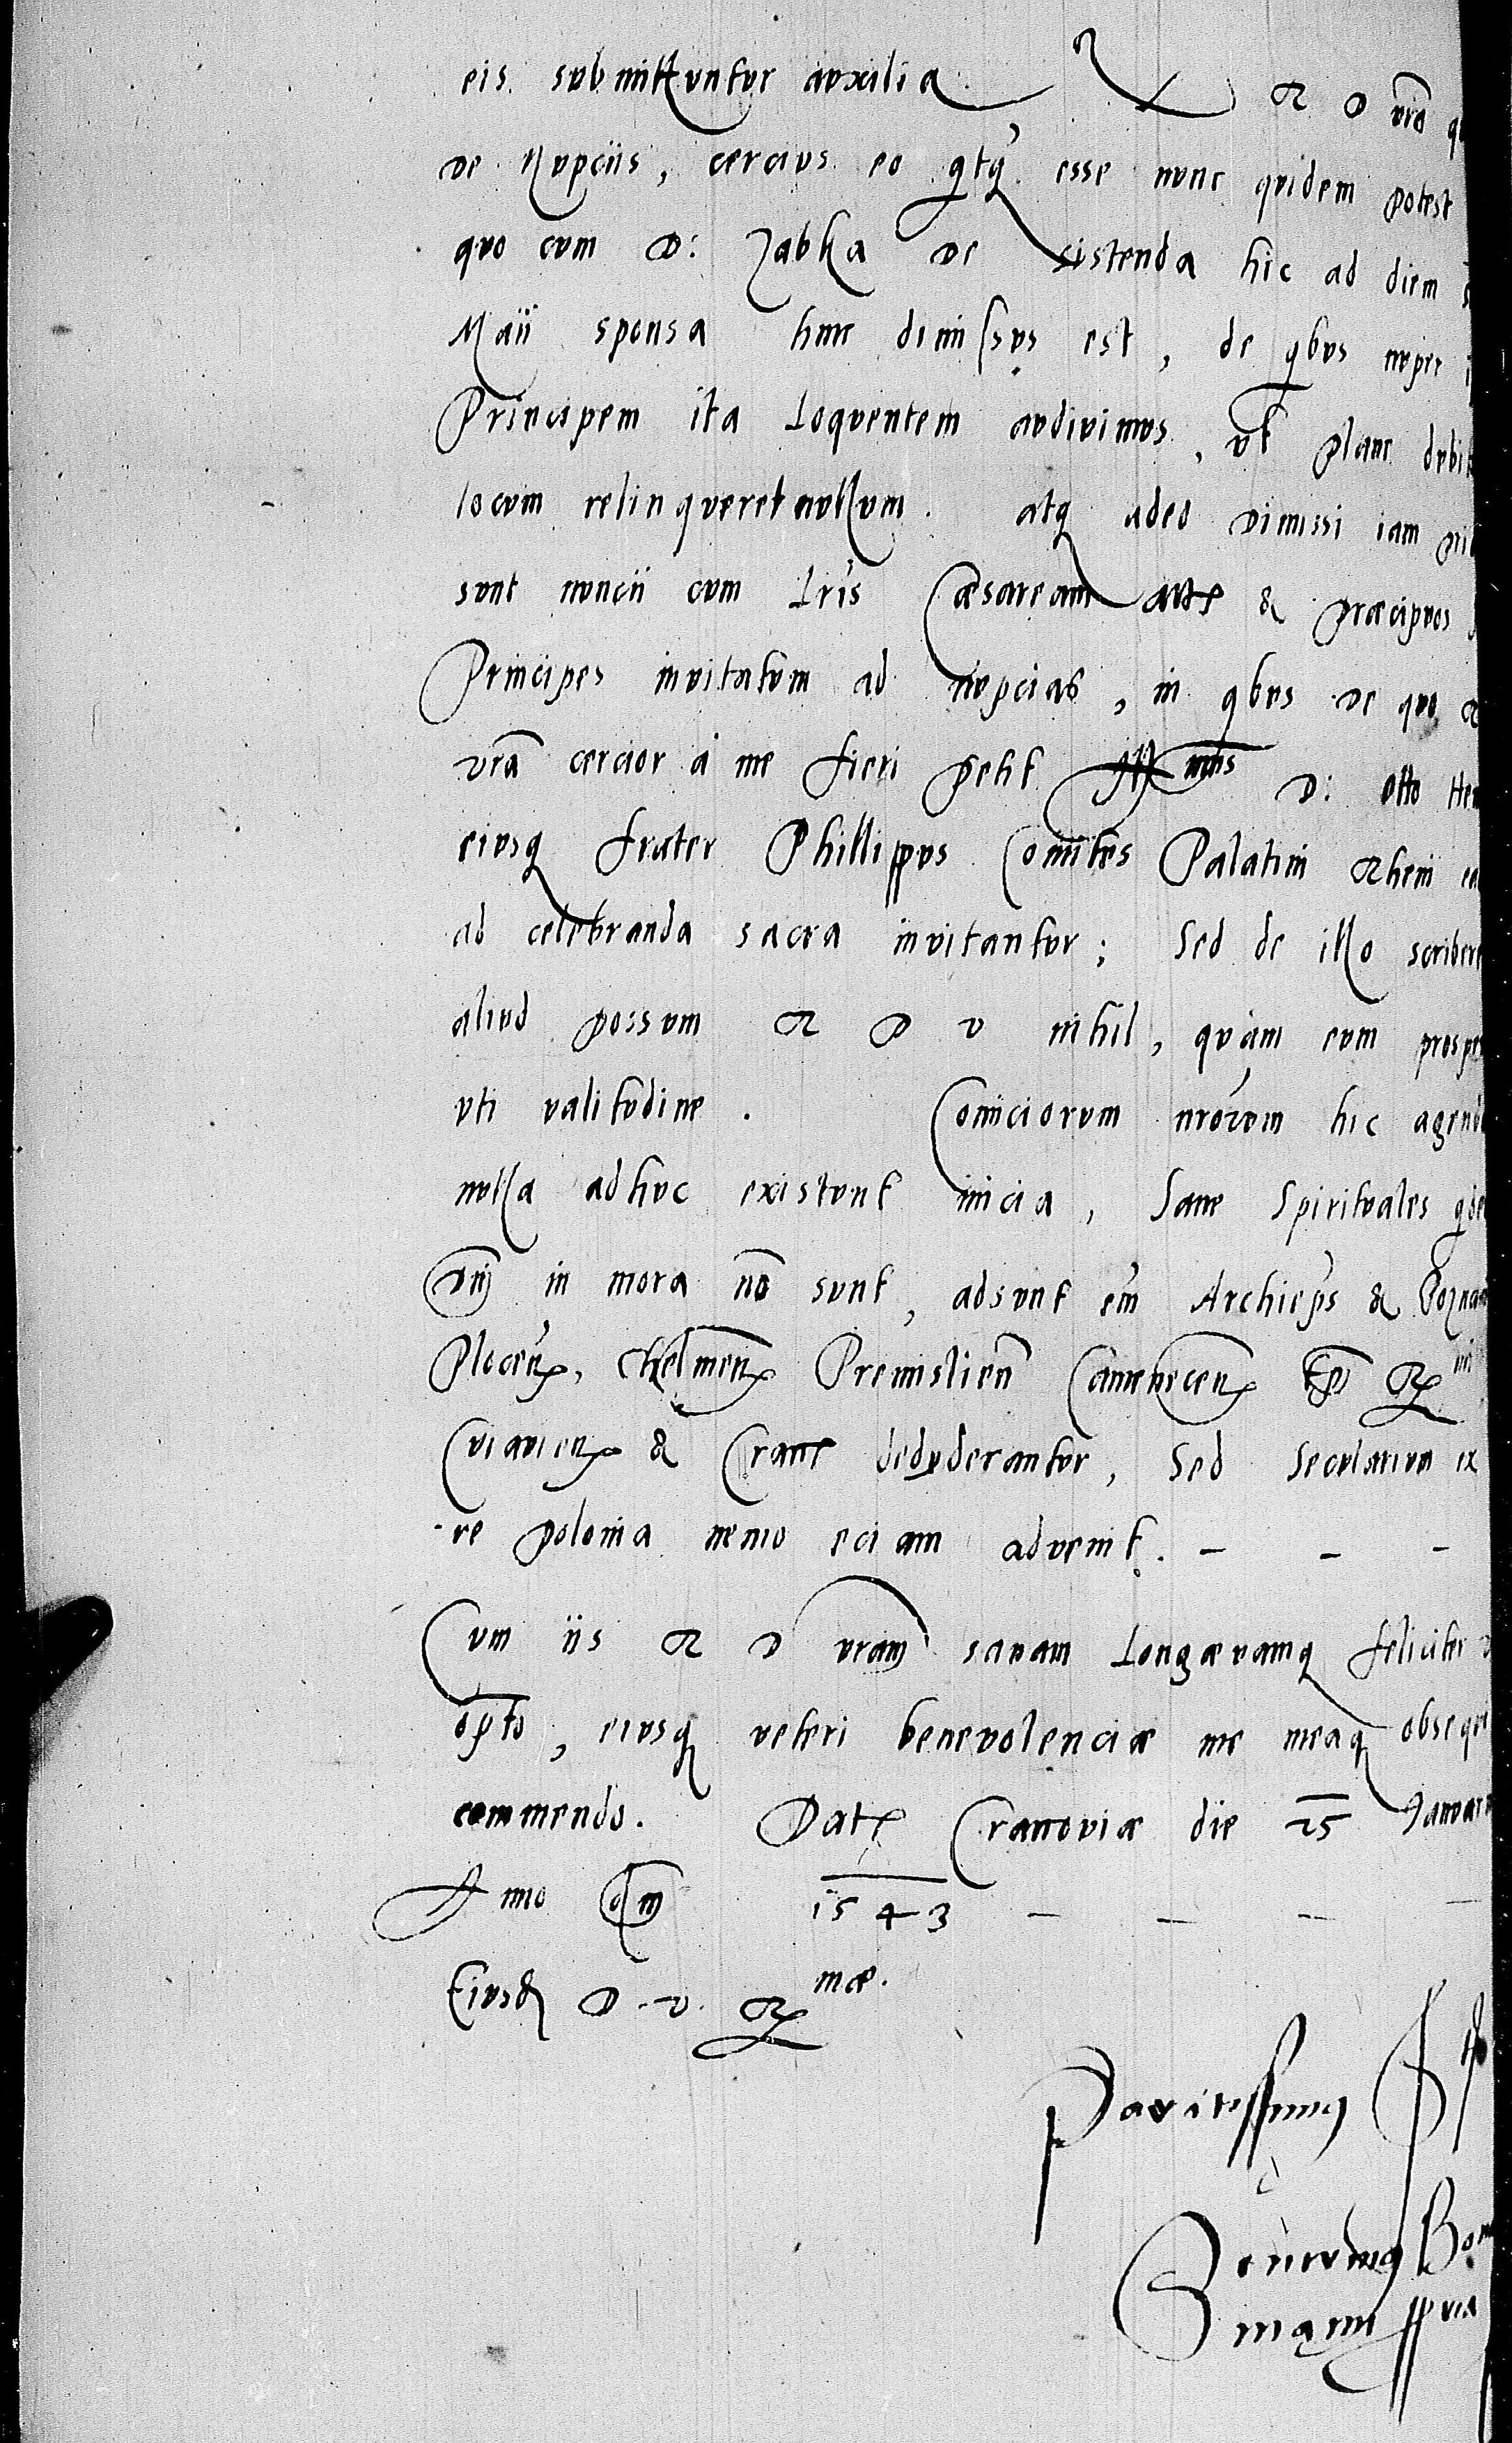 eis submittuntur auxilia. R D vrã
de Nupciis, cercius eo qtq́ esse nunc quidem potest
quo cum D: Zabka de sistenda hic ad diem
Maii sponsa hinc dimissus est, de qbus nuper
Principem ita Loquentem audiuimus, vt plane dubit
locum relinqueret nullum. atq adeo dimissi iam pri
sunt nuncii cum Lrĩs Cæsaream & præcipuos
Principes inuitatum ad nupcias, in qbus de quo R
vrã cercior a me fieri petit D: Otto Hen
eiusq frater Phillippus Comites Palatini Rheni ea
ad celebranda sacra inuitantur; Sed de illo scribere
aliud possum R D V nihil, quàm eum prospe
vti valitudine. Comiciorum nrõrum hic agend
nulla adhuc existunt inicia, Sane Spirituales qde
Dnĩ in mora nõ sunt, adsunt em̃ Archiep̃s & Poznan
Plocen̄, Chelmen̄ Premislien̄ Camenecen̄ Ep̃i R
Cuiauien̄ & Crac desyderantur, Sed Secularium ex
re polonia nemo eciam aduenit. - - -
Cum iis R D vram̃ sanam Longæuamq feliciter
opto, eiusq veteri beneuolenciæ me meaq obsequi
commendo. Dat Cracouiæ die 25 Januarii
Anno dn̄i 1543 - - - -
Eiusd D. V. R mæ.